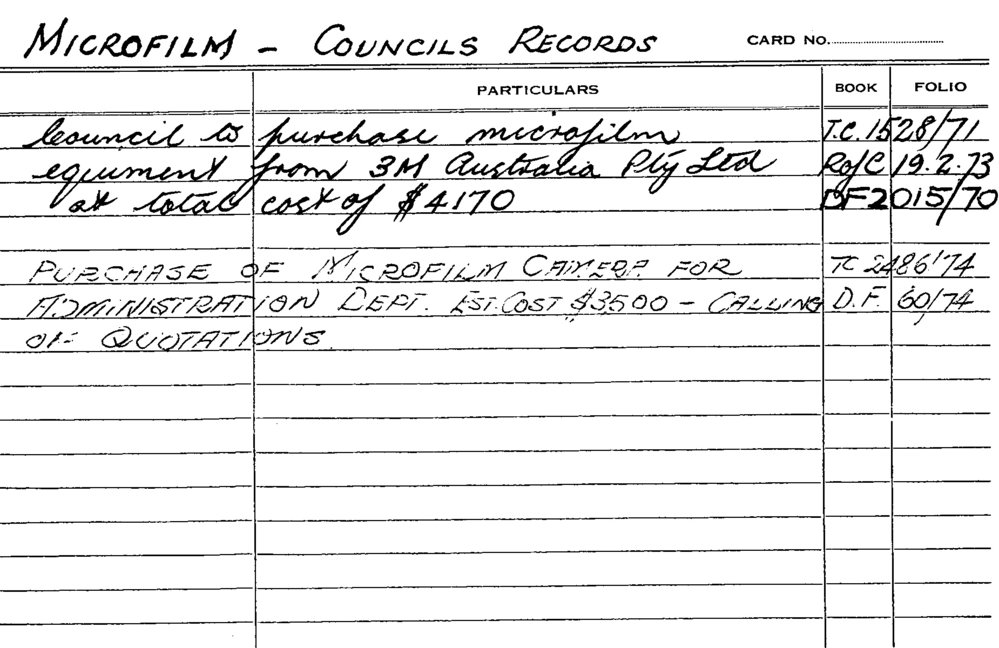 MICROFILM - COUNCILS RECORDS CARD NO.
PARTICULARS BOOK FOLIO
Council to purchase microfilm T.C. 1528/71
equiment from 3M Australia Pty Ltd RofC 19.2.73
at total cost of $4170 DF2015/70
PURCHASE OF MICROFILM CAMERA FOR TC 2486/74
ADMINISTRATION DEPT. EST. COST $3500 - CALLING D.F. 60/74
OF QUOTATIONS.